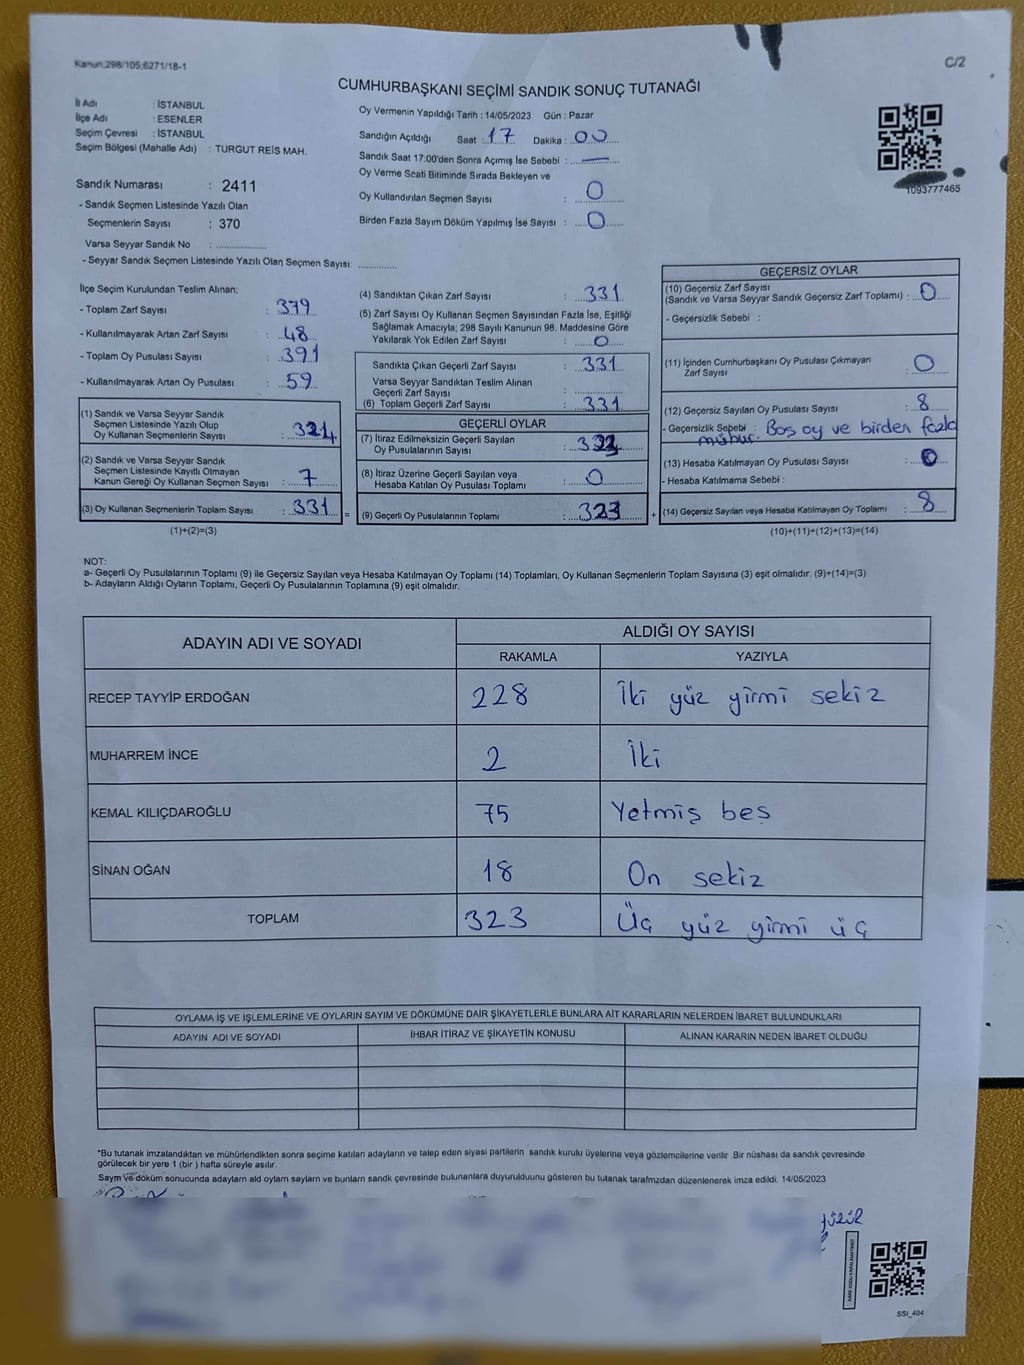 Kanun,298/105;6271/18-1
C/2
CUMHURBAŞKANI SEÇİMİ SANDIK SONUÇ TUTANAĞI
İl Adı : İSTANBUL
İlçe Adı : ESENLER
Seçim Çevresi : İSTANBUL
Seçim Bölgesi (Mahalle Adı) : TURGUT REİS MAH.
Sandık Numarası : 2411
- Sandık Seçmen Listesinde Yazılı Olan
Seçmenlerin Sayısı : 370
Varsa Seyyar Sandık No :
- Seyyar Sandık Seçmen Listesinde Yazılı Olan Seçmen Sayısı:
Oy Vermenin Yapıldığı Tarih : 14/05/2023 Gün : Pazar
Sandığın Açıldığı Saat : 17 Dakika : 00
Sandık Saat 17:00'den Sonra Açımış İse Sebebi : —
Oy Verme Scati Bitiminde Sırada Bekleyen ve
Oy Kullandırılan Seçmen Sayısı : 0
Birden Fazla Sayım Döküm Yapılmış İse Sayısı : 0
1093777465
İlçe Seçim Kurulundan Teslim Alınan:
- Toplam Zarf Sayısı : 379
- Kullanılmayarak Artan Zarf Sayısı : 48
- Toplam Oy Pusulası Sayısı : 391
- Kullanılmayarak Artan Oy Pusulası : 59
(1) Sandık ve Varsa Seyyar Sandık
Seçmen Listesinde Yazılı Olup
Oy Kullanan Seçmenlerin Sayısı : 324
(2) Sandık ve Varsa Seyyar Sandık
Seçmen Listesinde Kayıtlı Olmayan
Kanun Gereği Oy Kullanan Seçmen Sayısı : 7
(3) Oy Kullanan Seçmenlerin Toplam Sayısı : 331
(1)+(2)=(3)
(4) Sandıktan Çıkan Zarf Sayısı : 331
(5) Zarf Sayısı Oy Kullanan Seçmen Sayısından Fazla İse, Eşitliği
Sağlamak Amacıyla; 298 Sayılı Kanunun 98. Maddesine Göre
Yakılarak Yok Edilen Zarf Sayısı : 0
Sandıkta Çıkan Geçerli Zarf Sayısı : 331
Varsa Seyyar Sandıktan Teslim Alınan
Geçerli Zarf Sayısı :
(6) Toplam Geçerli Zarf Sayısı : 331
GEÇERLİ OYLAR
(7) İtiraz Edilmeksizin Geçerli Sayılan
Oy Pusulasının Sayısı : 323
(8) İtiraz Üzerine Geçerli Sayılan veya
Hesaba Katılan Oy Pusulası Toplamı : 0
= (9) Geçerli Oy Pusulalarının Toplamı : 323
GEÇERSİZ OYLAR
(10) Geçersiz Zarf Sayısı
(Sandık ve Varsa Seyyar Sandık Geçersiz Zarf Toplamı) : 0
- Geçersizlik Sebebi :
(11) İçinden Cumhurbaşkanı Oy Pusulası Çıkmayan
Zarf Sayısı : 0
(12) Geçersiz Sayılan Oy Pusulası Sayısı : 8
- Geçersizlik Sebebi : Boş oy ve birden fazla
mühür.
(13) Hesaba Katılmayan Oy Pusulası Sayısı : 0
- Hesaba Katılmama Sebebi :
+ (14) Geçersiz Sayılan veya Hesaba Katılmayan Oy Toplamı : 8
(10)+(11)+(12)+(13)=(14)
NOT:
a- Geçerli Oy Pusulalarının Toplamı (9) ile Geçersiz Sayılan veya Hesaba Katılmayan Oy Toplamı (14) Toplamları, Oy Kullanan Seçmenlerin Toplam Sayısına (3) eşit olmalıdır. (9)+(14)=(3)
b- Adayların Aldığı Oyların Toplamı, Geçerli Oy Pusulalarının Toplamına (9) eşit olmalıdır.
ADAYIN ADI VE SOYADI ALDIĞI OY SAYISI
RAKAMLA YAZIYLA
RECEP TAYYİP ERDOĞAN 228 İki yüz yirmi sekiz
MUHARREM İNCE 2 İki
KEMAL KILIÇDAROĞLU 75 Yetmiş beş
SİNAN OĞAN 18 On sekiz
TOPLAM 323 Üç yüz yirmi üç
OYLAMA İŞ VE İŞLEMLERİNE VE OYLARIN SAYIM VE DÖKÜMÜNE DAİR ŞİKAYETLERLE BUNLARA AİT KARARLARIN NELERDEN İBARET BULUNDUKLARI
ADAYIN ADI VE SOYADI İHBAR İTİRAZ VE ŞİKAYETİN KONUSU ALINAN KARARIN NEDEN İBARET OLDUĞU
*Bu tutanak imzalandıktan ve mühürlendikten sonra seçime katılan adayların ve talep eden siyasi partilerin sandık kurulu üyelerine veya gözlemcilerine verilir. Bir nüshası da sandık çevresinde
görülecek bir yere 1 (bir ) hafta süreyle asılır.
Sayım ve döküm sonucunda adayların ald oyların sayların ve bunların sandık çevresinde bulunanlara duyurulduunu gösteren bu tutanak tarafmzdan düzenlenerek imza edildi. 14/05/2023
SSI_404